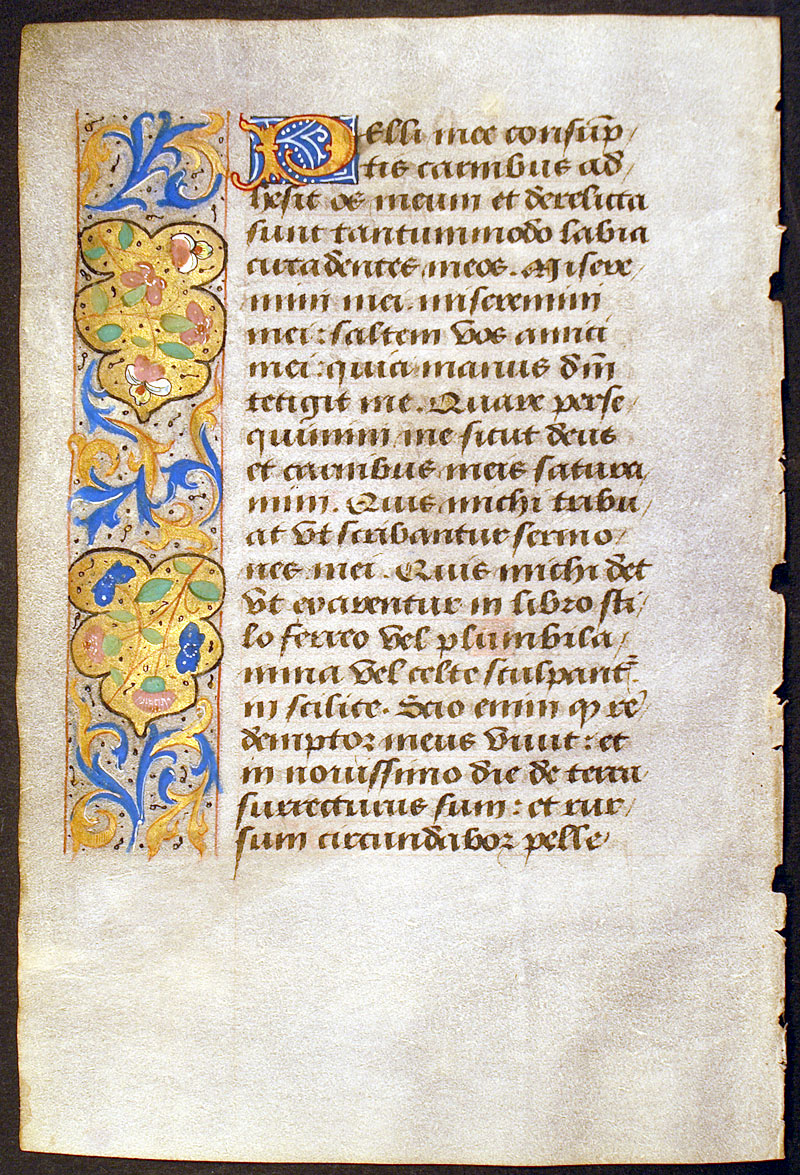 Pelli mee consūp
tis carnibus ad
hesit os meum et derelicta
sunt tantummodo labia
circa dentes meos. Misere
mini mei. miseremini
mei: saltem vos amici
mei: quia manus dm̄
tetigit me. Quare perse
quimini me sicut deus
et carnibus meis satura
mini. Quis michi tribu
at vt scribantur sermo
nes mei. Quis michi det
vt exarentur in libro sti
lo ferreo vel plumbi la
mina vel celte sculpant̄
in scilice. Scio enim ꝙ re
demptor meus viuit: et
in nouissimo die de terra
surrecturus sum: et rur
sum circundabor pelle